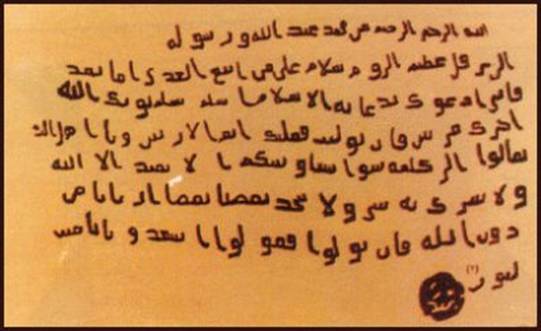 الله الرحمن الرحيم من محمد عبد الله ورسوله
الى هرقل عظيم الروم سلام على من اتبع الهدى اما بعد
فانى ادعوك بدعاية الاسلام اسلم تسلم يوتك الله
اجرك مرتين فان توليت فعليك اثم الاريسين ويا اهل
تعالوا الى كلمة سوا بيننا وبينكم الا نعبد الا الله
ولا نشرك به ولا يتخذ بعضنا بعضا اربابا من
دون الله فان تولوا فقولوا اشهدوا بانا مس
لمون